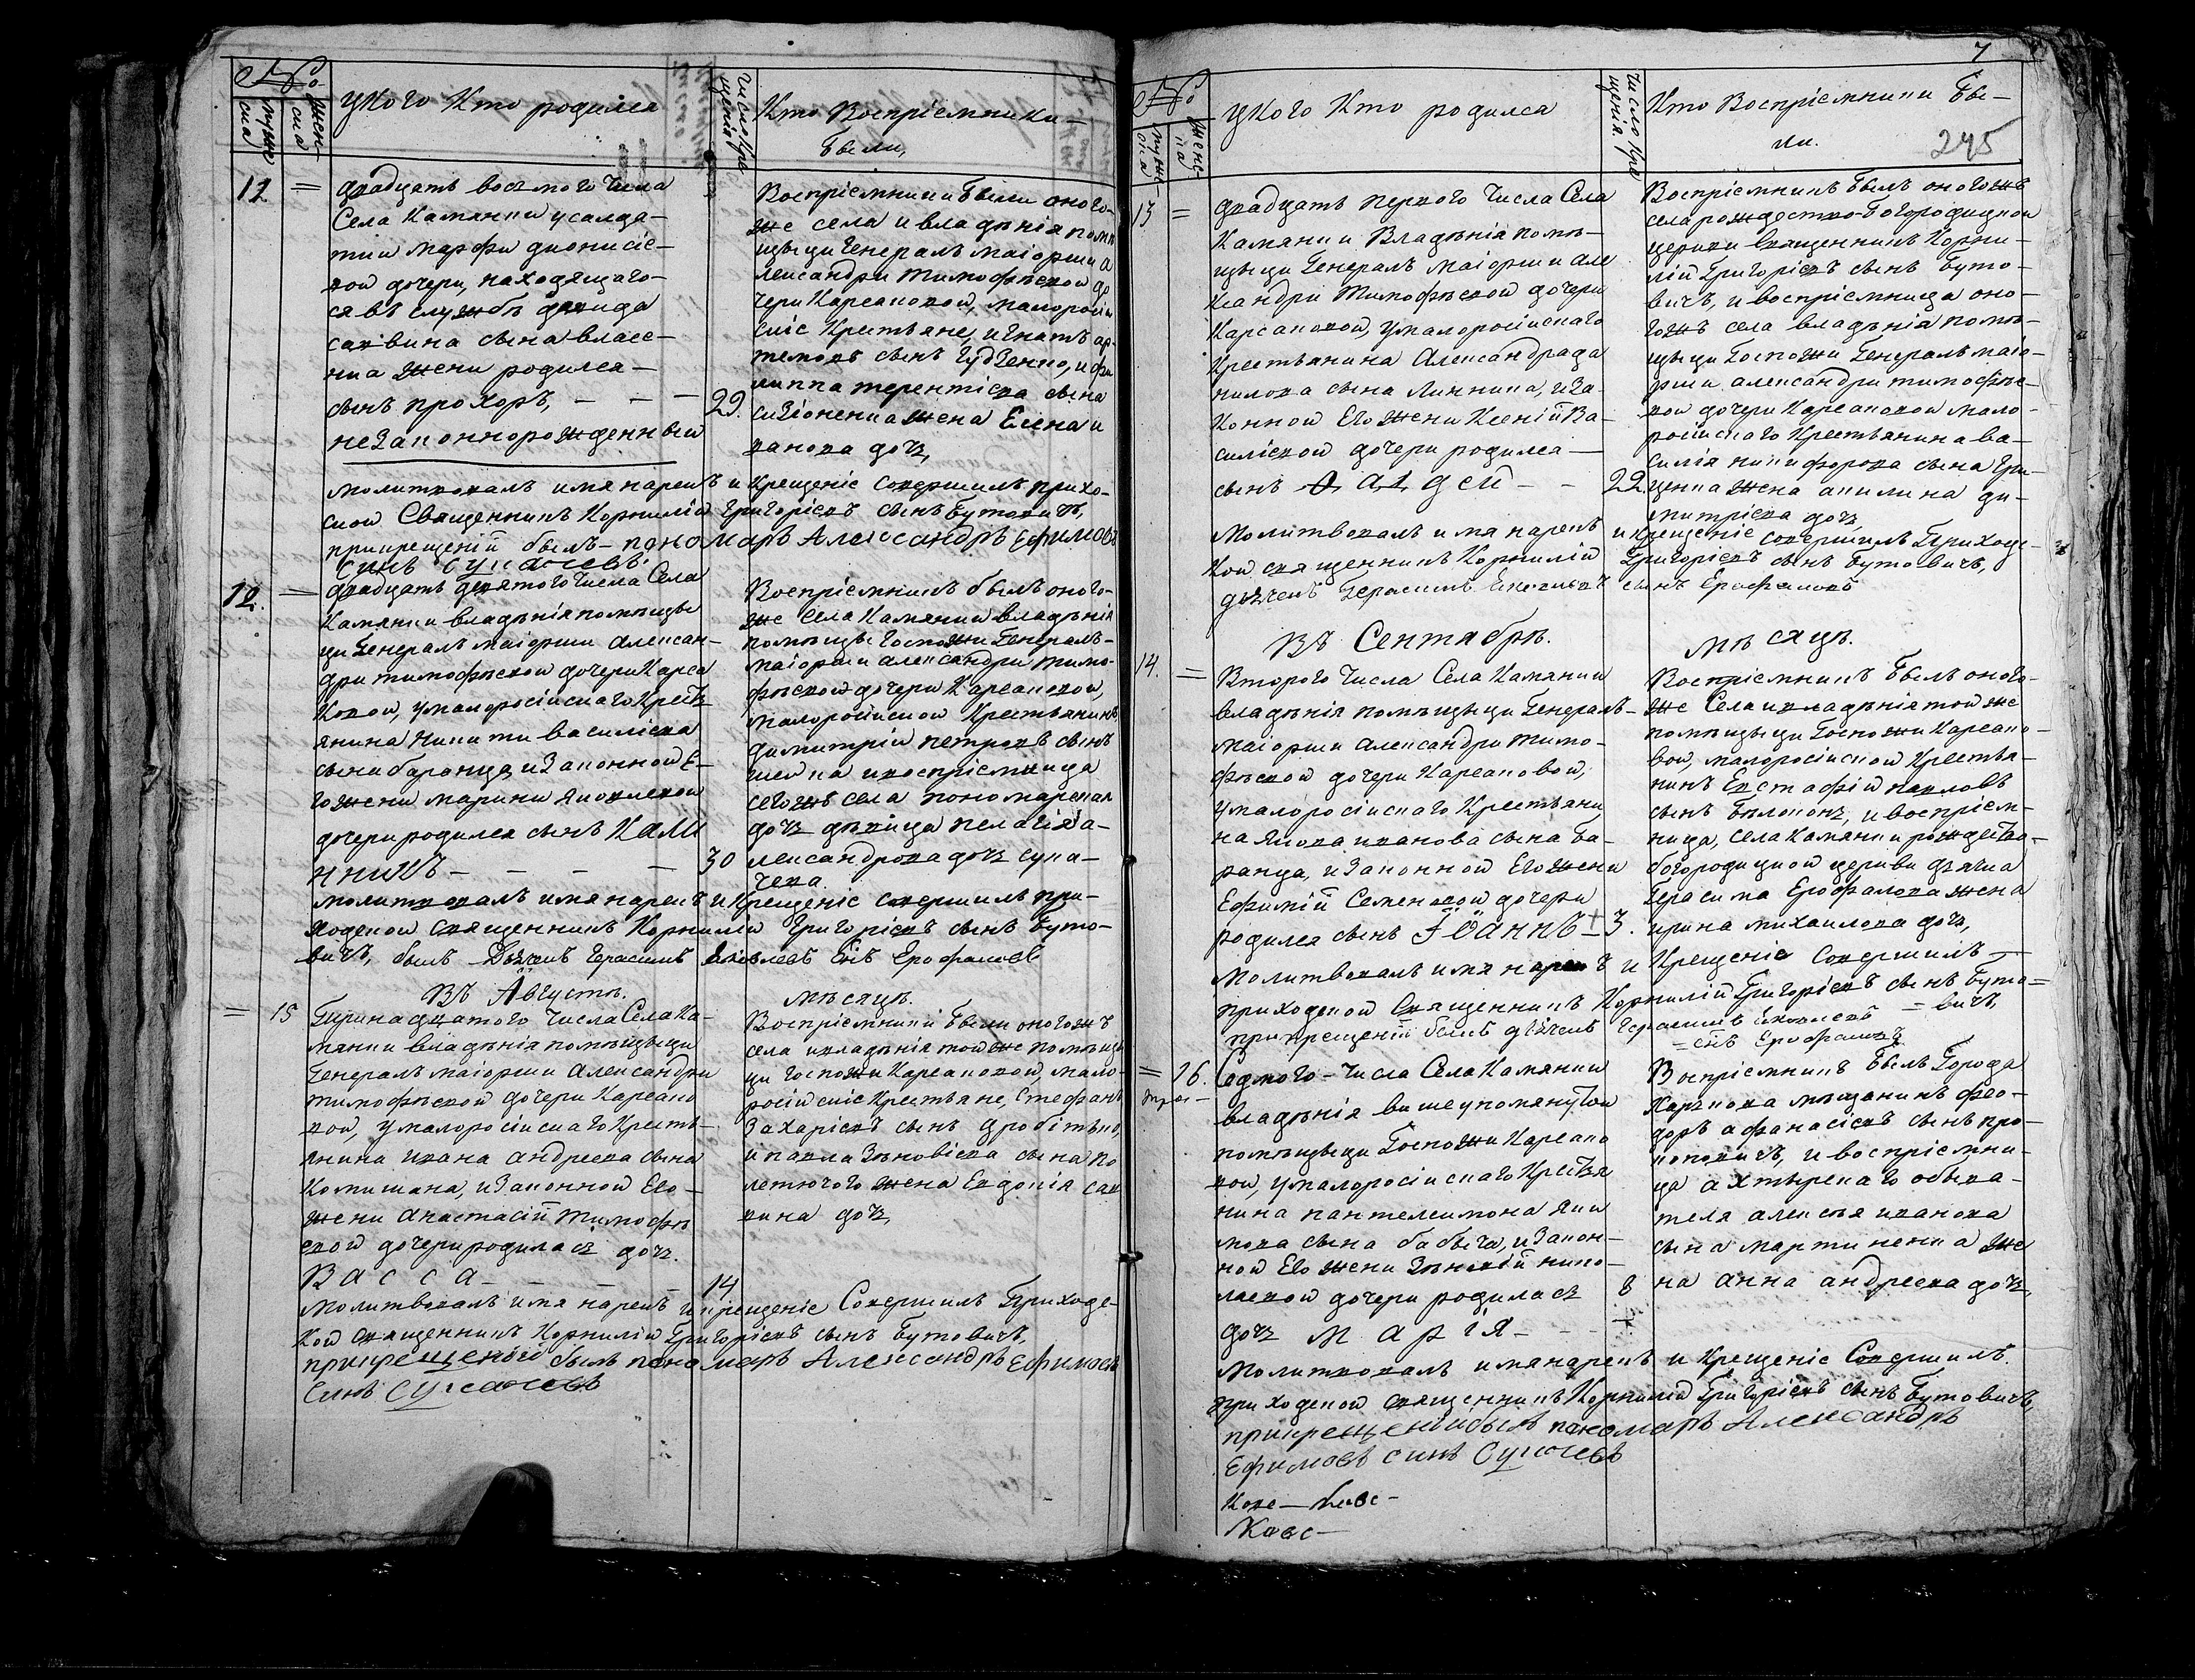 №
мужеска
женска
укого Кто родилса
число крещенія
Кто Воспріемники
были,
12
двадцать восмого числа
Села Камянки усалда-
тки Марфи дионисіе-
вой дочери, находящаго-
ся въ службѣ давида
саввина сына власе-
нка жени родился
сынъ прохоръ,
незаконнорожденный
29
Воспріемники были оного-
же села и владѣнія помѣ
щици генералъ маіорши а
лександри тимофѣевой до
чери Карсаковой, малоросій
скіе Крестьяне, игнатъ ар-
темовъ сынъ гудзенко, и фи
липпа терентіева сына
жена Елена и
ванова дочь,
молитвовалъ имя нарекъ и крещеніе совершилъ прихо-
ской Священникъ Корнилій Григоріевъ сынъ Бутовичъ,
прикрещеніи былъ пономаръ Александръ Ефимовъ
синъ Сукачевъ.
12.
двадцать девятого числа Села
Камянки владѣнія помѣщи
ци Генералъ маіорши Алексан-
дри тимофѣевой дочери Карса
ковой, умалоросійскаго Крестъ
янина никити василіева
сына баранца, и Законной Е-
гожени марини яковлевой
дочери родился сынъ Кали
нникъ
30
Воспріемникъ былъ оного-
же села Камянки владѣнія
помѣщици Госпожи Генералъ-
маіорши александри тимо-
фѣевой дочери Карсаковой,
малоросійской Крестьянинъ
димитрій петровъ сынъ
шейка и воспріемница
сегожъ села пономарская
дочь дѣвица пелагія а-
лександрова дочь сука-
чева.
молитвовалъ имя нарекъ и Крещеніе совершилъ при-
ходской Священникъ Корнилій Григоріевъ сынъ Буто-
вичъ, былъ Дьячекъ Герасимъ Яковлевъ Снъ Ерофаловъ
Въ Августѣ. мѣсяцѣ.
15
Тиринадцатого числа Села Ка-
мянки владѣнія помѣщици
Генералъ маіорши Александри
тимофѣевой дочери Карсако
вой, умалоросійскаго Кресть-
янина ивана андреева сына
Комишана, и Законной Его
жени анастасіи Тимофѣ
евой дочери родилась дочь.
Васса
14
Воспріемники были оногожъ
села и владѣнія той же помѣщи
ци госпожи Карсаковой, мало-
російскіе Крестьяне, Стефанъ
Захаріевъ сынъ дробітько,
и павла Зѣновіева сына по
летючого жена Евдокія сав
вина дочь,
Молитвовалъ имя нарекъ и крещеніе Совершилъ Приходс-
кой Священникъ Корнилій Григоріевъ сынъ Бутовичъ,
прикрещеніи былъ пономаръ Александръ Ефимовъ
Синъ Сукачевъ
7
№
мужеска
женска
укого Кто родилса
Число Крещенія.
Кто Воспріемники бы-
ли.
245
13
двадцать первого Числа Села
Камянки Владѣнія помѣ-
щици Генералъ маіорши але
ксандри Тимофѣевой дочери
Карсаковой, умалоросійскаго
Крестьянина Александра да
нилова сына Линника, и За-
Конной Его жени Ксеніи Ва-
силіевой дочери родился
сынъ Фаддей
22
Воспріемникъ былъ оногожъ
села рождество-богородицкой
церкви Священникъ Корни-
лій Григоріевъ сынъ Буто-
вичъ, и воспріемница оно-
гожъ села владѣнія помѣ-
щици Госпожи Генералъ маіо-
рши александри тимофѣе-
вой дочери Карсаковой мало-
російскаго Крестьянина ва-
силія никифорова сына Гри-
ценка жена акилина ди-
митріева дочь,
Молитвовалъ имя нарекъ и крещеніе совершилъ Приходс-
кой священникъ Корнилій Григоріевъ сынъ Бутовичъ,
дьячекъ Герасимъ Яковлевъ сынъ Ерофаловъ
Въ Сентябрѣ. мѣсяцѣ.
14.
Второго Числа Села Камянки
владѣнія помѣщици Генералъ-
маіорши александри Тимо-
фѣевой дочери Карсаковой,
умалоросійскаго Крестьяни
на якова иванова сына Ба-
ранца, и Законной Его жени
Ефиміи Семеновой дочери
родился сынъ Іоаннъ
3.
Воспріемникъ былъ оного-
же Села и владѣнія той же
помѣщици Госпожи Карсако-
вой, малоросійской Крестья-
нинъ Евстафій павловъ
сынъ Білоконь, и воспріем-
ница, села Камянки рождество-
богородицкой церкви дьячка
Герасима Ерофалова жена
ирина михаилова дочь,
Молитвовалъ имя нарекъ и Крещеніе Совершилъ
приходской Священникъ Корнилій Григоріевъ сынъ Буто=
=вичъ,
прикрещеніи былъ дьячекъ Герасимъ Яковлевъ
=снъ Ерофаловъ
16.
Седмого Числа Села Камянки
владѣнія вишеупомянутой
помѣщици Госпожи Карсако
вой, умалоросійскаго Крестья
нина пантелеимона яки
мова сына бабича, и Закон-
ной Его жени Зѣновіи нико-
лаевой дочери родилась
дочь Марія
8
Воспріемникъ былъ Города
Харькова мѣщанинъ фео-
доръ афанасіевъ сынъ про-
коповичъ, и воспріемни-
ца ахтырскаго обыва-
теля алексѣя иванова
сына мартиненка же
на анна андреева дочь,
Молитвовалъ имя нарекъ и Крещеніе Совершилъ.
приходской священникъ Корнилій Григоріевъ сынъ Бутовичъ,
прикрещеніи былъ пономаръ Александръ
Ефимовъ синъ Сукачевъ